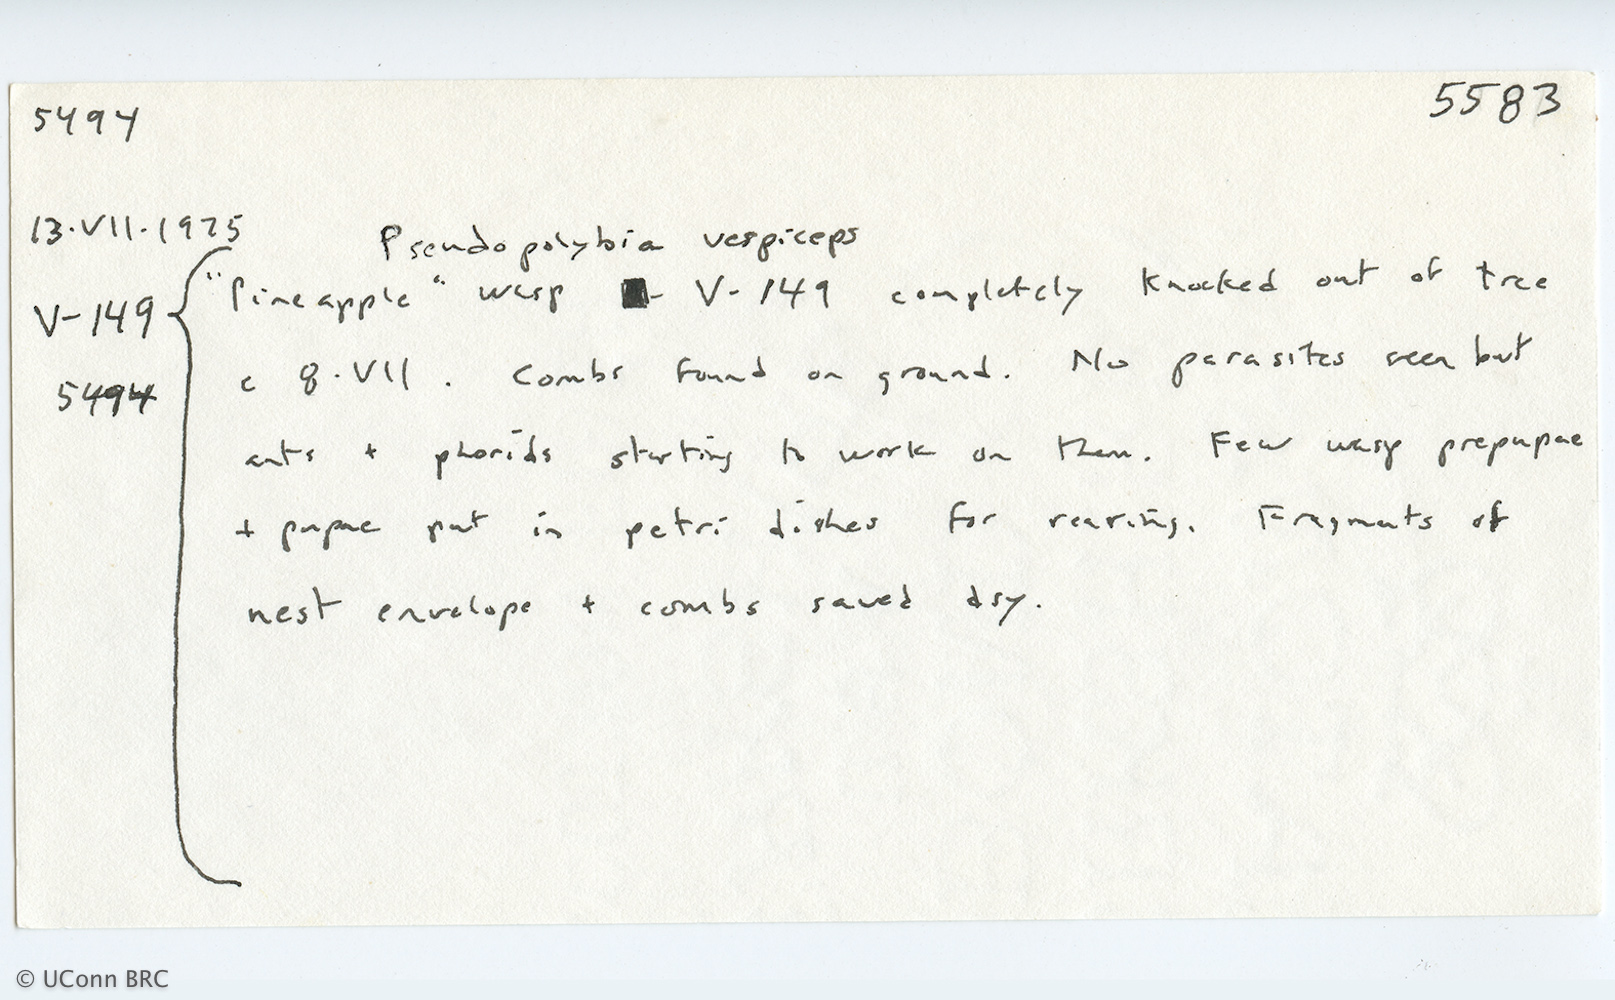 5494
5583
13.VII.1975
Pseudopolybia vespiceps
V-149
"Pineapple" wasp - V-149 completely knocked out of tree
c 8.VII. Combs found on ground. No parasites seen but
5494
ants + phorids starting to work on them. Few wasp prepupae
+ pupae put in petri dishes for rearing. Fragments of
nest envelope + combs saved dry.
© UConn BRC